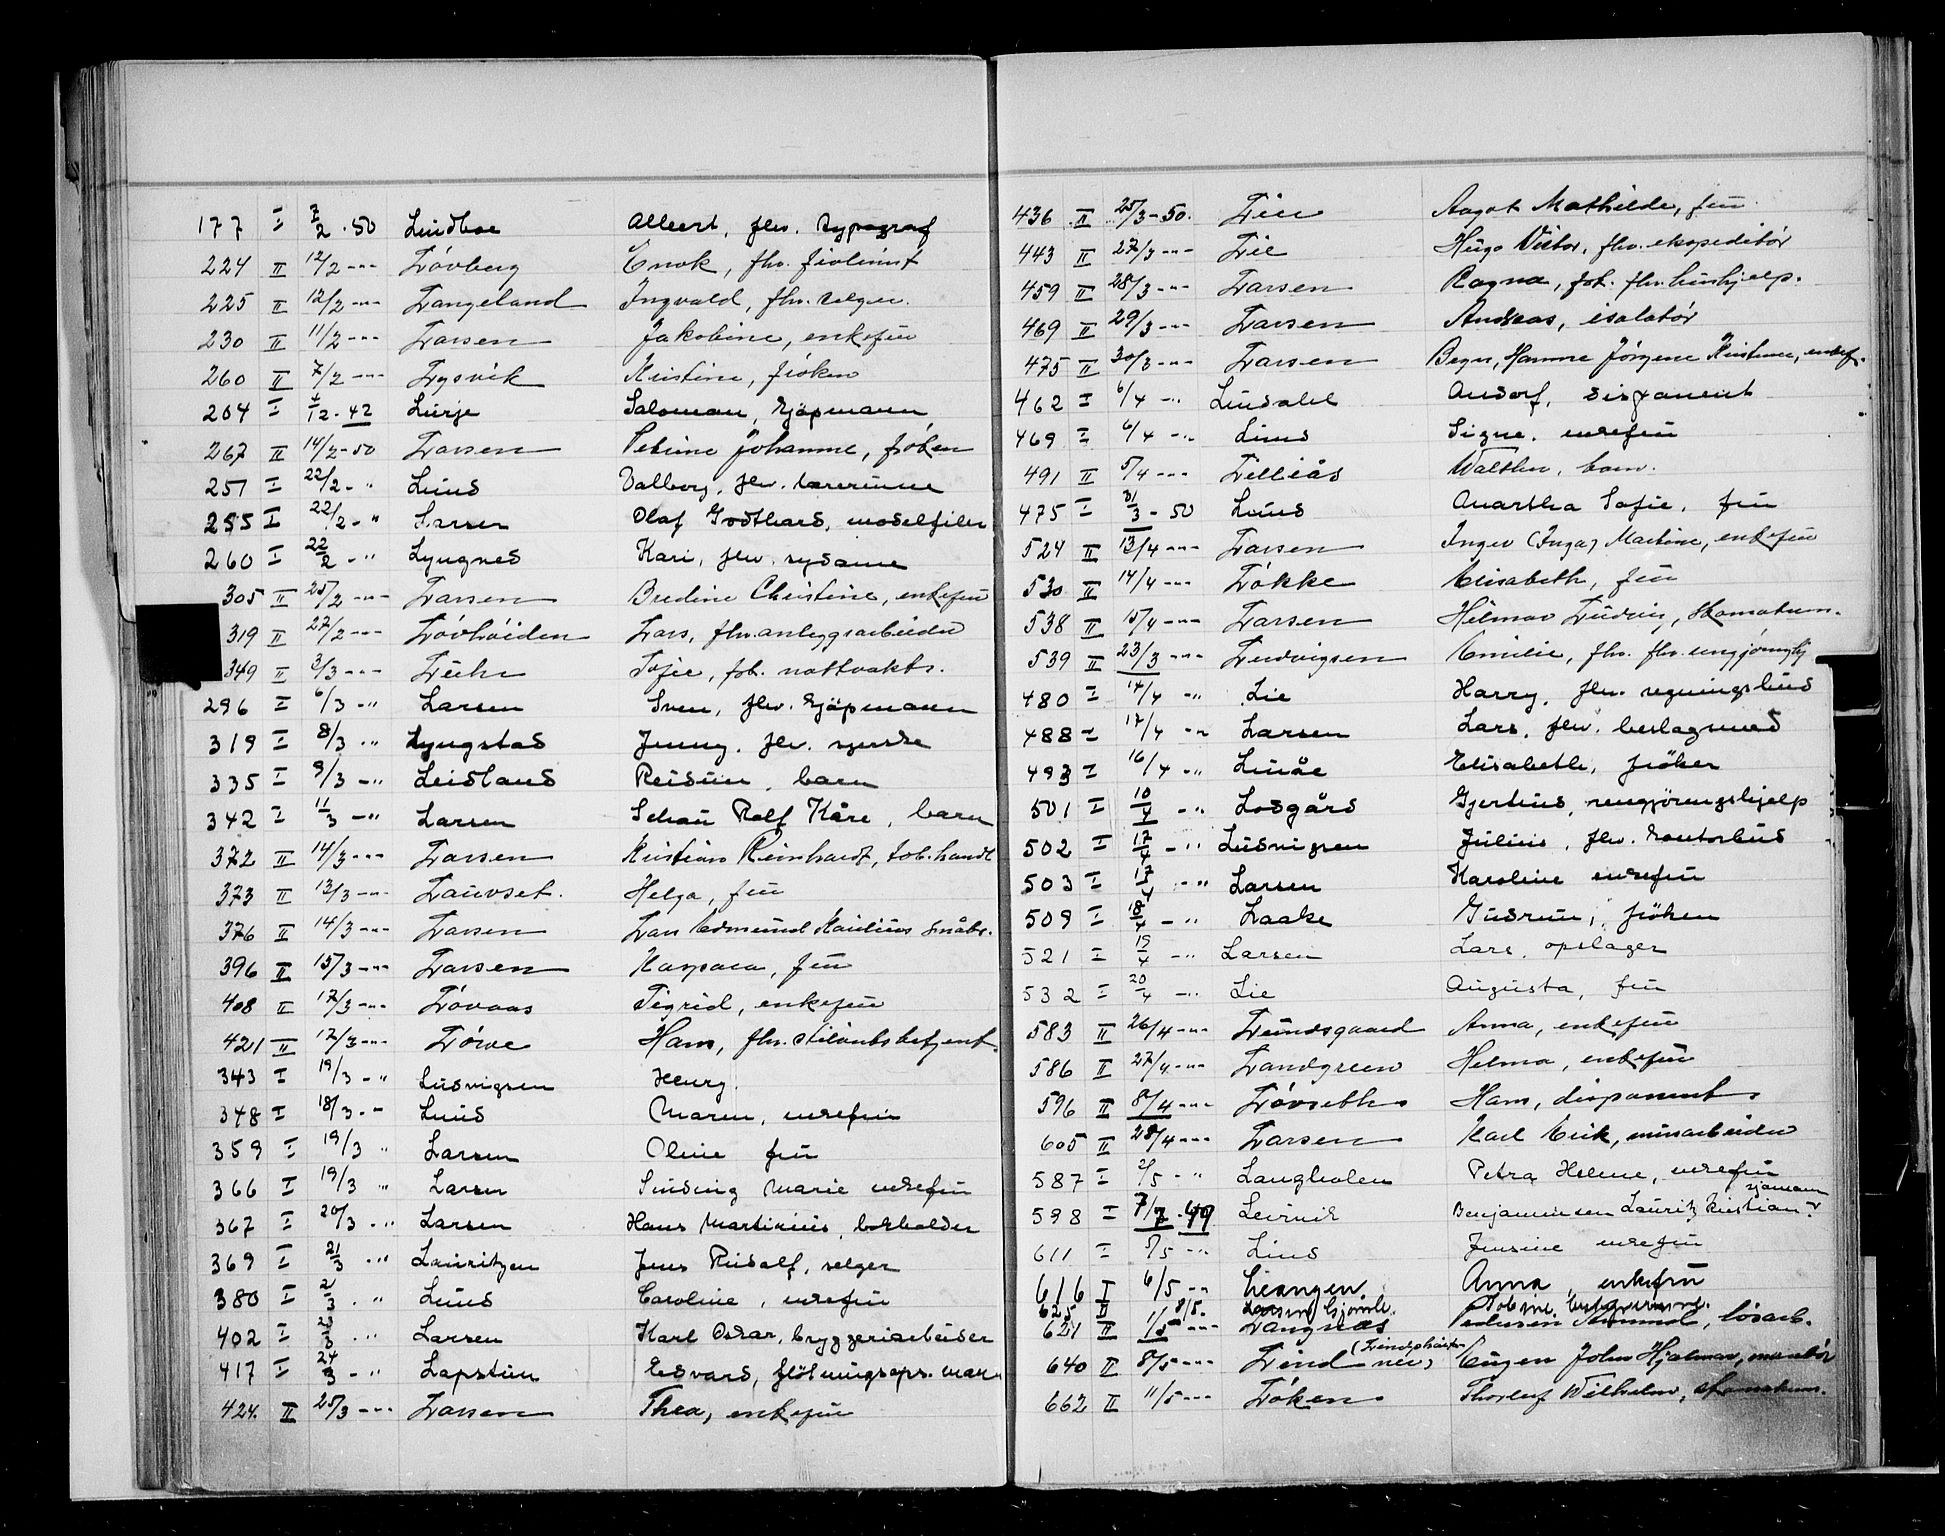 177 I 7/2 - 50 Lindboe Albert, fhv. typograf
224 II 12/2 -"- Løvberg Enok, fhv. fiolinist
225 II 12/2 -"- Langeland Ingvald, fhv. selger.
230 II 11/2 -"- Larsen Jakobine, enkefru
260 II 7/2 -"- Lysvik Kristine, frøken
204 I 4/12 - 42 Lurje Saloman, kjøpmann
267 II 14/2 - 50 Larsen Petrine Johanne, frøken
251 I 22/2 - " Lund Valborg, fhv. lærerinne
255 I 22/2 - " Larsen Olaf Godthard, modelfiler
260 I 22/2 - " Lyngnes Kari, fhv. sydame
305 II 25/2 -"- Larsen Bredine Christine, enkefru
319 II 27/2 -"- Løvhøiden Lars, fhv. anleggsarbeider
349 II 3/3 -"- Lühr Sofie, fhv. nattvakts.
296 I 6/3 - " Larsen Sven, fhv. kjøpmann
319 I 8/3 - " Lyngstad Jenny, fhv. syerske
335 I 9/3 - " Leidland Reidun, barn
342 I 11/3 - " Larsen Schau Rolf Kåre, barn
372 II 14/3 -"- Larsen Kristian Reinhardt, tob.handl
373 II 13/3 -"- Lauvset. Helga, fru
376 II 14/3 -"- Larsen Lars Edmund Kaurius småbr.
396 II 15/3 -"- Larsen Kaspara, fru
408 II 17/3 -"- Løvaas Sigrid, enkefru
421 II 17/3 -"- Hans, fhv.
343 I 19/3 - " Ludvigsen Henry.
348 I 18/3 - " Lund Maren, enkefru
359 I 19/3 " Larsen Oline fru
366 I 19/3 " Larsen Sinding Marie enkefru
367 I 20/3 - " Larsen Hans Martinius, bokholder
369 I 21/3 - " Lauritzen Jens Rudolf, selger
380 I 21/3 - " Lund Caroline, enkefru
402 I 23/3 - " Larsen Karl Oskar, bryggeriarbeider
417 I 24/3 - " Lapstun Edvard, fløtningsops. mann
424. II 25/3 -"- Larsen Thea, enkefru
436 II 25/3 - 50. Lie Aagot Mathilde, fru
443 II 27/3 -"- Lie Hugo Victor, fhv. ekspeditør
459 II 28/3 -"- Larsen Ragna, frk. fhv. hushjelp.
469 II 29/3 -"- Larsen Andreas, isolatør
475 II 30/3 -"- Larsen Berger, Hanne Jørgene Kristine, enkef.
462 I 6/4 - " Lindahl Andorf, disponent
469 I 6/4 - " Lund Signe, enkefru
491 II 5/4 -"- Lilleås Walther, barn.
475 I 31/3 - 50 Lund Anartha Sofie, fru
524 II 13/4 -"- Larsen Inger (Inga) Martine, enkefru
530 II 14/4 -"- Løkke Elisabeth, fru
538 II 15/4 -"- Larsen Hilmar Ludvig, skomakerm.
539 II 23/3 -"- Ludvigsen Emilie, fhv. fhv. rengjøringshj
480 I 14/4 - " Lie Harry, fhv. regningsbud
488 I 17/4 - " Larsen Lars, fhv. beslagsmed
493 I 16/4 - " Linåe Elisabeth, frøken
501 I 10/4 - " Losgård Gjertrud, rengjøringshjelp
502 I 17/4 - " Ludvigsen Julius, fhv. kontorbud
503 I 17/4 - " Larsen Karoline enkefru
509 I 18/4 - " Laake Gudrun, frøken
521 I 15/4 - " Larsen Lars, opslager
532 I 20/4 - " Lie Augusta, fru
583 II 26/4 -"- Lundsgaard Anna, enkefru
586 II 27/4 -"- Landgreen Helma, enkefru
596 II 8/4 -"- Løvseth Hans, disponent
605 II 28/4 -"- Larsen Karl Erik, murarbeider
587 I 2/5 - " Langholen Petra Helene, enkefru
598 I 7/7 - 49 Leirvik Benjaminsen Lauritz Kristian sjømann
611 I 5/5 - " Lund Jensine enkefru
616 I 6/5 - " Liangen. Anna, enkefru
625 II 8/5. Larsen Gjømle. Tobine, bestyrerinne.
621 II 1/5 -"- Langnæs Pedersen løsarb.
640 II 8/5 -"- Lind Eugen John Hjalmar, montør
662 II 11/5 -"- Løken Thorleif Wilhelm, skomakerm.